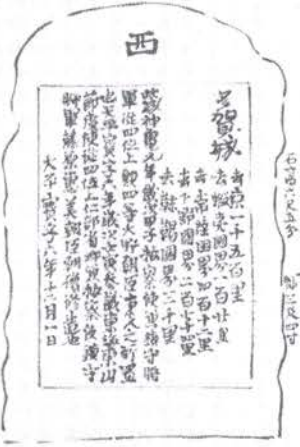 西
多賀城
去京一千五百里
去蝦夷國界一百廿里
去常陸國界四百十二里
去下野國界二百七十四里
去靺鞨國界三千里
此城神龜元年歲次甲子按察使兼鎮守將
軍從四位上勳四等大野朝臣東人之所置
也天平寶字六年歲次壬寅參議東海東山
節度使從四位上仁部省卿兼按察使鎮守
將軍藤原惠美朝臣朝獦修造也
天平寶字六年十二月一日
六尺五分
三尺四寸